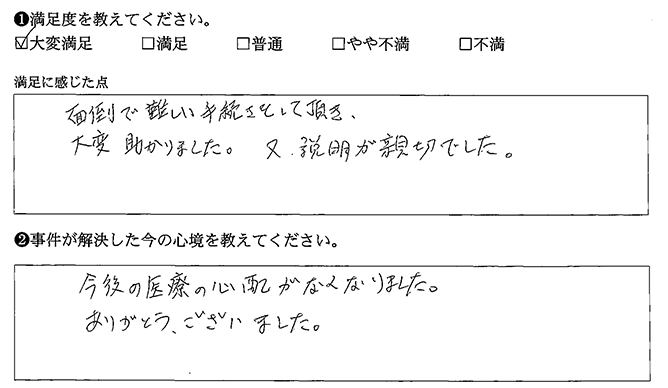 ❶満足度を教えてください。
☑大変満足 □満足 □普通 □やや不満 □不満
満足に感じた点
面倒で難しい手続きをして頂き、
大変 助かりました。 又、説明が親切でした。
❷事件が解決した今の心境を教えてください。
今後の医療の心配がなくなりました。
ありがとう、ございました。